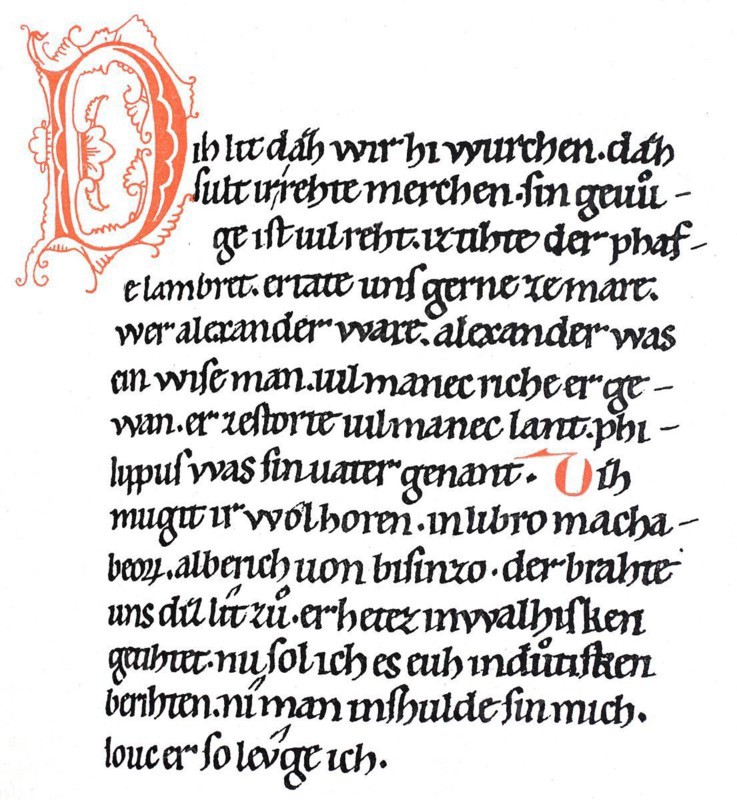 Dih lit dah wir hi wurchen. dah
sult ir rehte merchen. sin geuůi -
ge ist uil reht. iz tihte der phaf-
e lambret. er tate unſ gerne ze mare.
wer alexander ware. alexander was
ein wiſe man. uil manec riche er ge -
wan. er zeſtorte uil manec lant. phi -
lippuſ was ſin uater genant. Dih
mugit ir wôl horen. in libro macha -
beoꝝ. alberich uon biſinzo. der brahte
uns diz lît zů. er hetez in walhiſken
getihtet. nu ſol ich es euh in důtiſken
berihten. nîman inſhulde ſin mich.
louc er ſo levge ich.